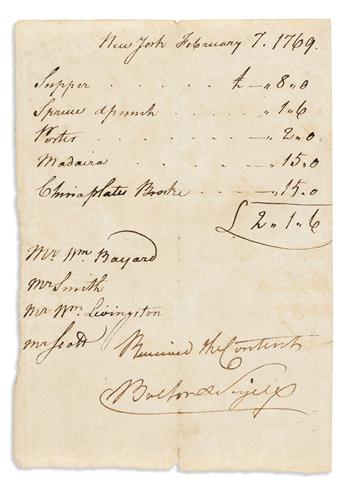 New York February 7. 1769.
Supper . . . . . £ - „ 8 „ 0
Spruce & punch . . . . - „ 1 „ 6
Porter . . . . . - „ 2 „ 0
Madaira . . . . - „ 15 „ 0
China plates Broke . . - „ 15 „ 0
£ 2 „ 1 „ 6
Mr Wm Bayard
Mr Smith
Mr Wm Livingston
Mr Scott
Received the Contents
Bolton & Sigell